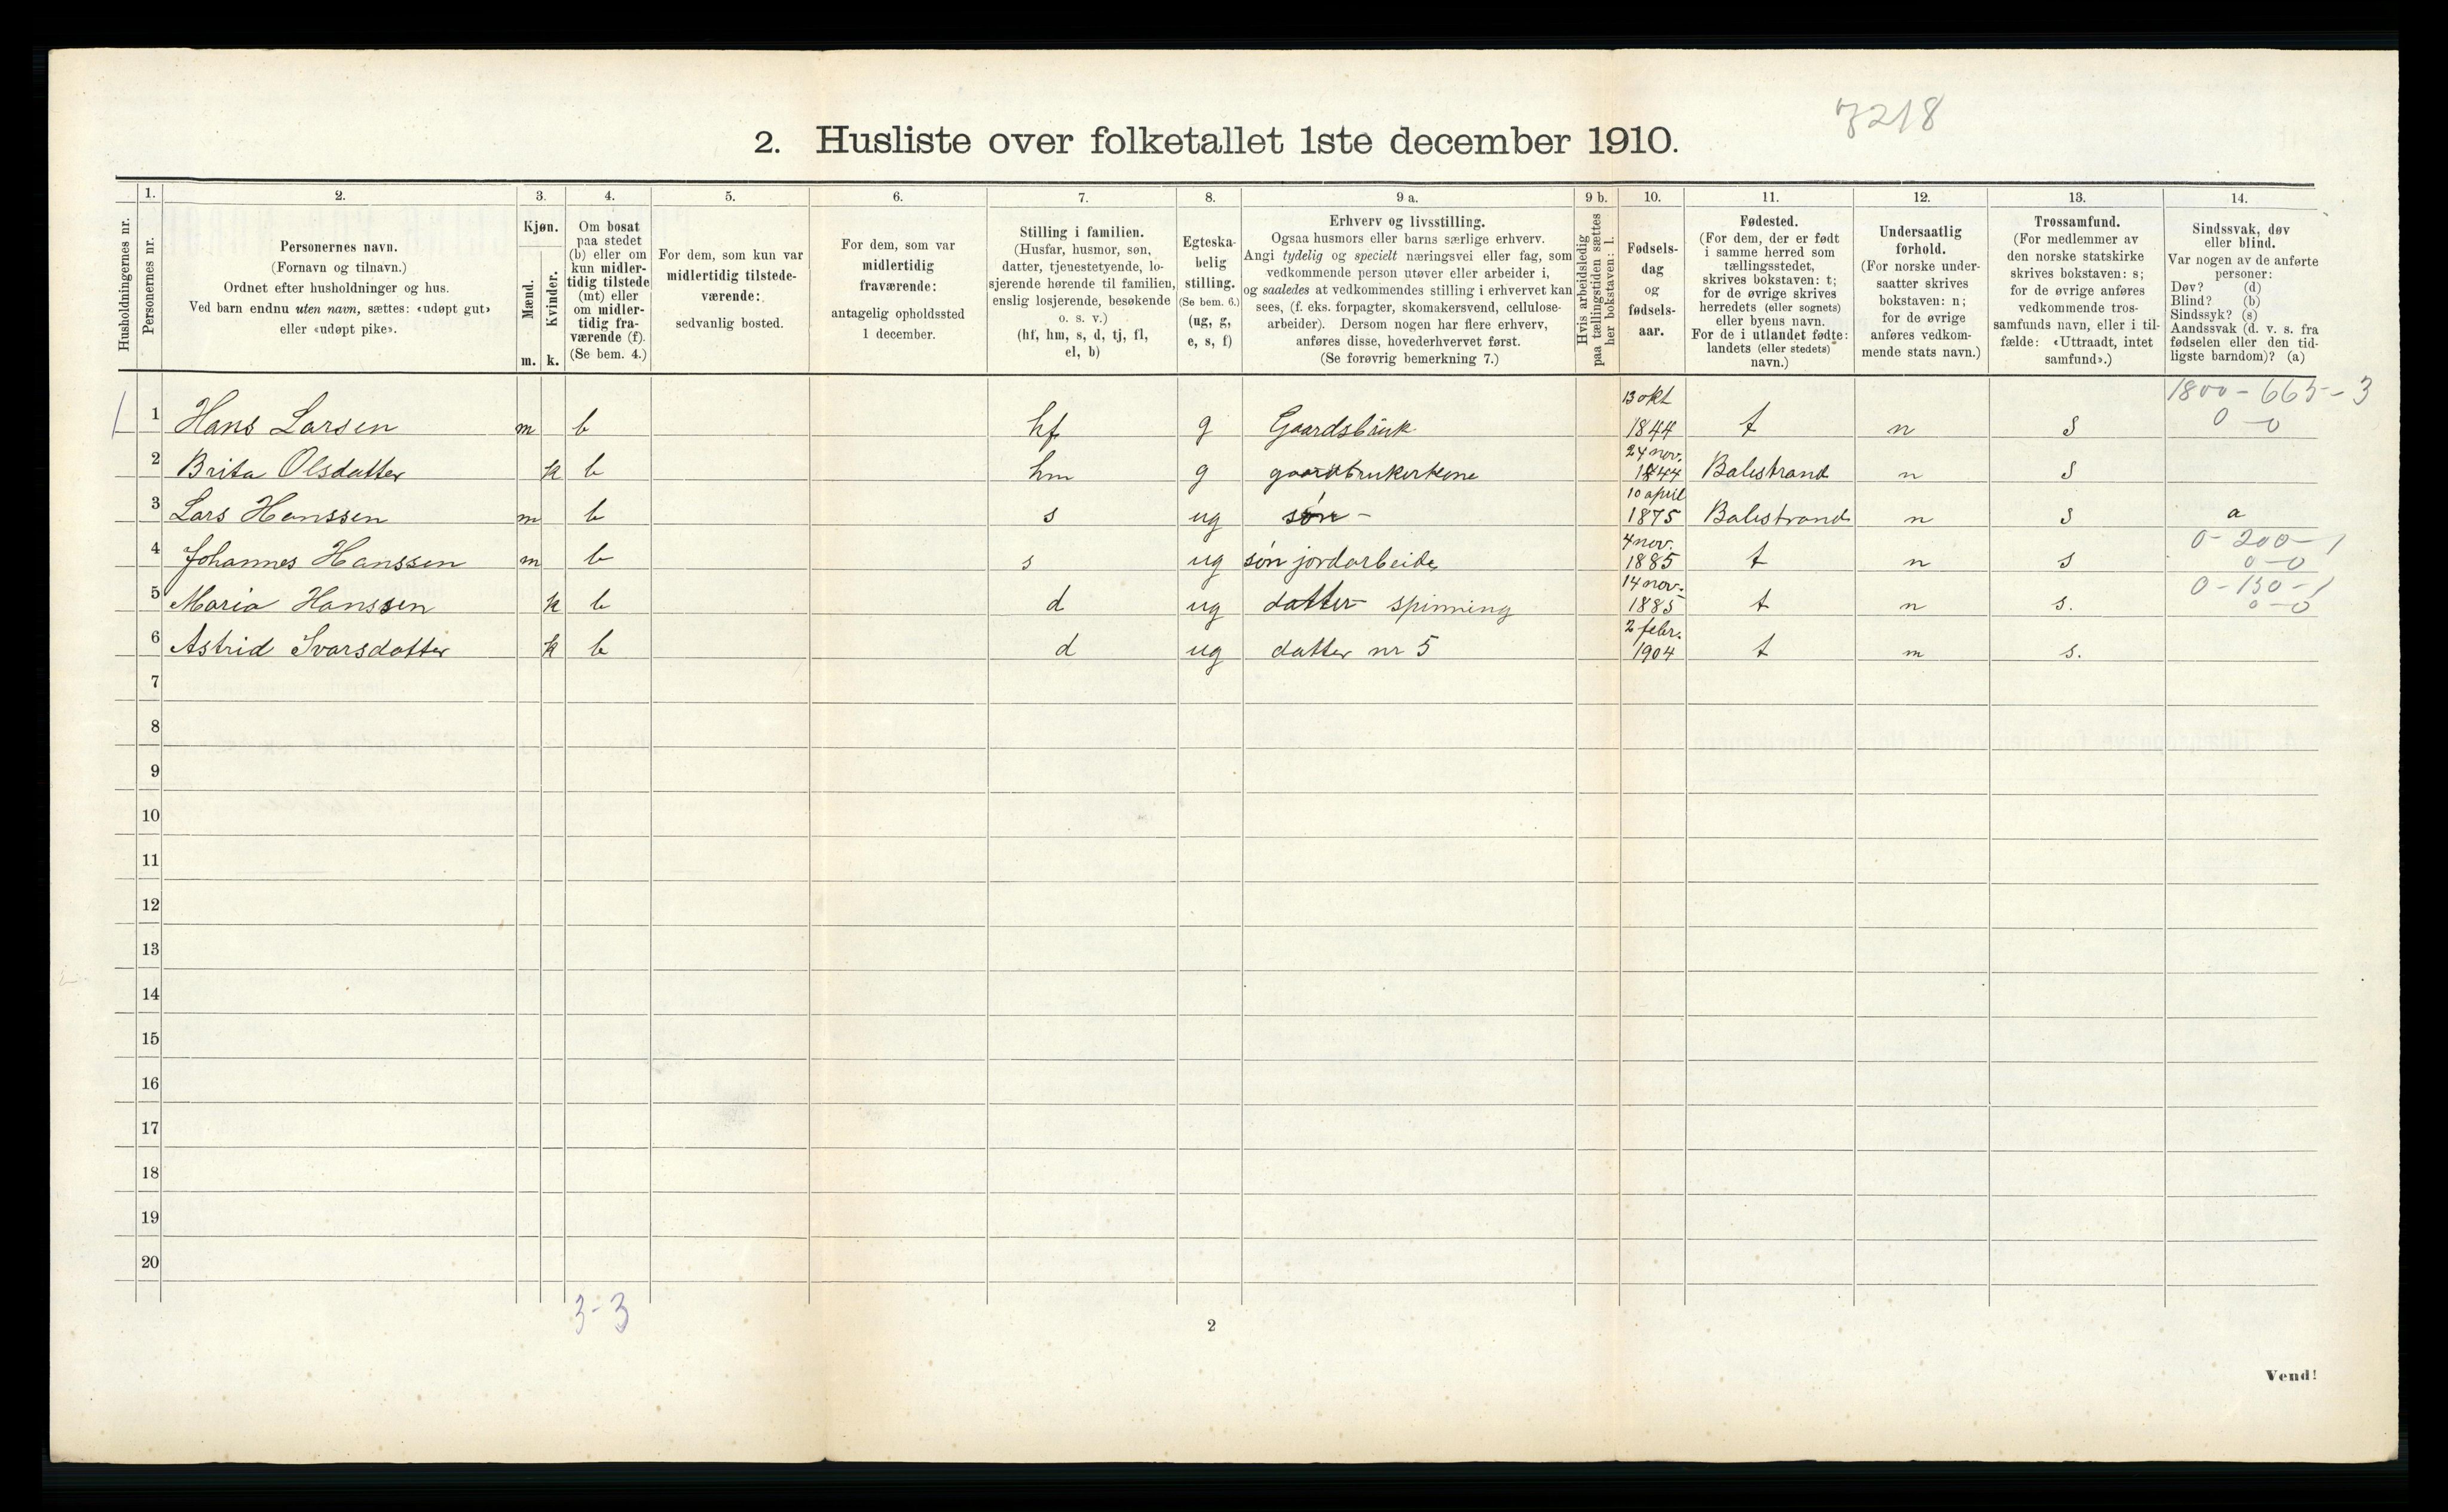 7218
2. Husliste over folketallet 1ste december 1910.
Husholdningernes nr.
1. Personernes nr.
2. Personernes navn.
(Fornavn og tilnavn.)
Ordnet efter husholdninger og hus.
Ved barn endnu uten navn, sættes: «udøpt gut»
eller «udøpt pike».
3. Kjøn.
Mænd. m.
Kvinder. k.
4. Om bosat
paa stedet
(b) eller om
kun midler-
tidig tilstede
(mt) eller
om midler-
tidig fra-
værende (f).
(Se bem. 4.)
5. For dem, som kun var
midlertidig tilstede-
værende:
sedvanlig bosted.
6. For dem, som var
midlertidig
fraværende:
antagelig opholdssted
1 december.
7. Stilling i familien.
(Husfar, husmor, søn,
datter, tjenestetyende, lo-
sjerende hørende til familien,
enslig losjerende, besøkende
o. s. v.)
(hf, hm, s, d, tj, fl,
el, b)
8. Egteska-
belig
stilling.
(Se bem. 6.)
(ug, g,
e, s, f)
9 a. Erhverv og livsstilling.
Ogsaa husmors eller barns særlige erhverv.
Angi tydelig og specielt næringsvei eller fag, som
vedkommende person utøver eller arbeider i,
og saaledes at vedkommendes stilling i erhvervet kan
sees, (f. eks. forpagter, skomakersvend, cellulose-
arbeider). Dersom nogen har flere erhverv,
anføres disse, hovederhvervet først.
(Se forøvrig bemerkning 7.)
9 b. Hvis arbeidsledig
paa tællingstiden sættes
her bokstaven: l.
10. Fødsels-
dag
og
fødsels-
aar.
11. Fødested.
(For dem, der er født
i samme herred som
tællingsstedet,
skrives bokstaven: t;
for de øvrige skrives
herredets (eller sognets)
eller byens navn.
For de i utlandet fødte:
landets (eller stedets)
navn.)
12. Undersaatlig
forhold.
(For norske under-
saatter skrives
bokstaven: n;
for de øvrige
anføres vedkom-
mende stats navn.)
13. Trossamfund.
(For medlemmer av
den norske statskirke
skrives bokstaven: s;
for de øvrige anføres
vedkommende tros-
samfunds navn, eller i til-
fælde: «Uttraadt, intet
samfund».)
14. Sindssvak, døv
eller blind.
Var nogen av de anførte
personer:
Døv? (d)
Blind? (b)
Sindssyk? (s)
Aandssvak (d. v. s. fra
fødselen eller den tid-
ligste barndom)? (a)
1800-665-3
1 1 Hans Larsen m b hf g Gaardsbruk 13 okt 1844 t n s 0-0
2 Brita Olsdatter k b hm g gaardbrukerkone 24 nov. 1844 Balestrand n s
3 Lars Hanssen m b s ug søn - 10 april 1875 Balestrand n s a
0-200-1
4 Johannes Hanssen m b s ug søn jordarbeide 4 nov. 1885 t n s 0-0
0-130-1
5 Maria Hanssen k b d ug datter spinning 14 nov. 1885 t n s. 0-0
6 Astrid Ivarsdatter k b d ug datter nr 5 2 febr. 1904 t n s.
7
8
9
10
11
12
13
14
15
16
17
18
19
20
3-3
2
Vend!